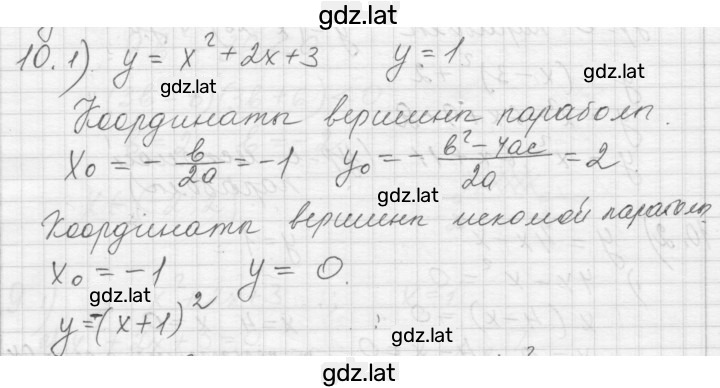 gdz.lat
10.1) y = x² + 2x + 3 y = 1
gdz.lat gdz.lat
Координаты вершины параболы.
x₀ = - в/2a = -1 y₀ = - в² - 4ac/2a = 2
gdz.lat gdz.lat
Координаты вершины искомой параболы
x₀ = -1 y = 0.
gdz.lat
y = (x+1)²
gdz.lat
gdz.lat